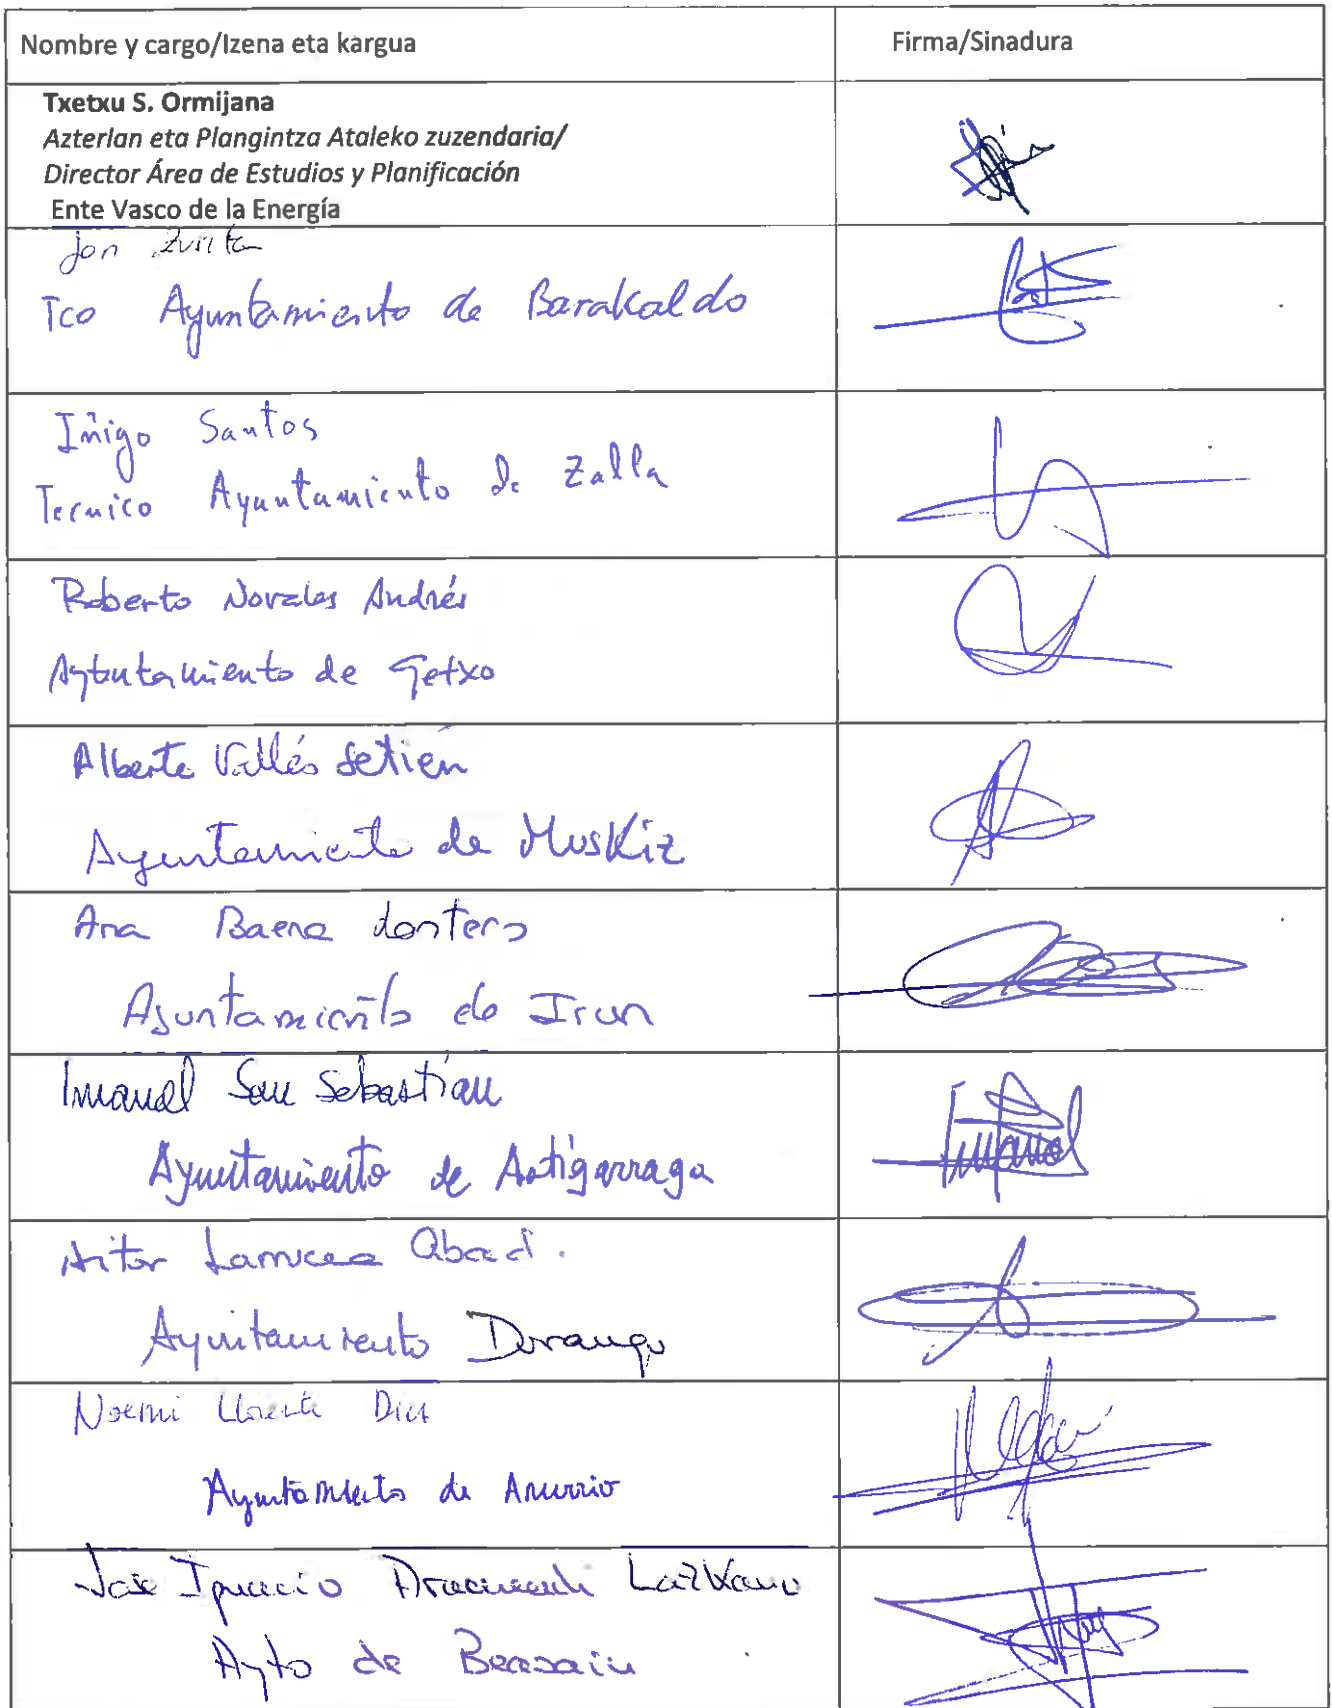 Nombre y cargo/Izena eta kargua
Firma/Sinadura
Txetxu S. Ormijana
Azterlan eta Plangintza Ataleko zuzendaria/
Director Área de Estudios y Planificación
Ente Vasco de la Energía
Jon Zurita
Tco Ayuntamiento de Barakaldo
Iñigo Santos
Tecnico Ayuntamiento de Zalla
Roberto Novales Andrés
Ayuntamiento de Getxo
Alberto Vallés Setién
Ayuntamiento de Muskiz
Ana Baena
Ayuntamiento de Irun
Imanol San Sebastian
Imanol
Ayuntamiento de Astigarraga
Aitor Abad.
Ayuntamiento Durango
Noemi Llorente
Ayuntamiento de Amurrio
Jose Ignacio Lazkano
Ayto de Beasain